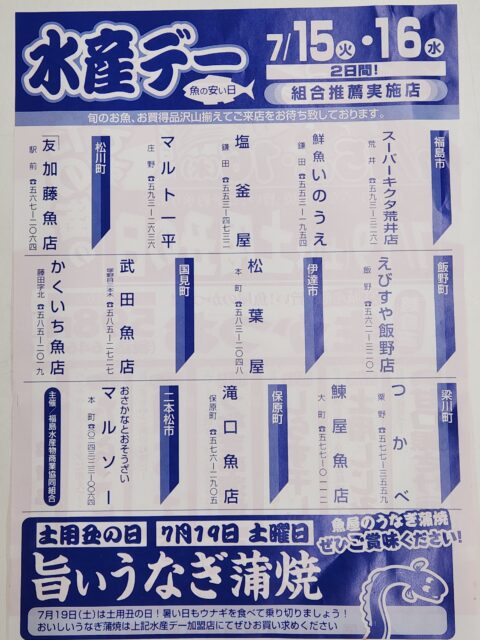 水産デー
魚の安い日
7/15火・16水
2日間!
組合推薦実施店
旬のお魚、お買得品沢山揃えてご来店をお待ち致しております。
福島市
スーパーキクタ荒井店
荒井 ☎五九三―二三二三
鮮魚いのうえ
鎌田 ☎五五三―一九五四
塩釜屋
鎌田 ☎五五三―六四五四
マルト一平
庄野 ☎五九三―二三六一
松川町
友加藤魚店
駅前 ☎五六七―二〇六四
飯野町
えびすや飯野店
飯野 ☎五六二―三二〇一
伊達市
松葉屋
本町 ☎五八三―二〇四八
国見町
武田魚店
塚野目三本木 ☎五八五―二七二七
かくいち魚店
藤田字北 ☎五八五―二〇一九
梁川町
つかべ
粟野 ☎五七七―三五五九
鰊屋魚店
大町 ☎五七七―〇一一一
保原町
滝口魚店
保原町 ☎五七六―二九〇五
二本松市
おさかなとおそうざい
マルソー
本町 ☎〇二四三―二三―〇六六四
主催/福島水産物商業協同組合
土用丑の日 7月19日 土曜日
魚屋のうなぎ蒲焼
ぜひご賞味ください!
旨いうなぎ蒲焼
7月19日(土)は土用丑の日!暑い日もウナギを食べて乗り切りましょう!
おいしいうなぎ蒲焼は上記水産デー加盟店にてぜひお買い求めください